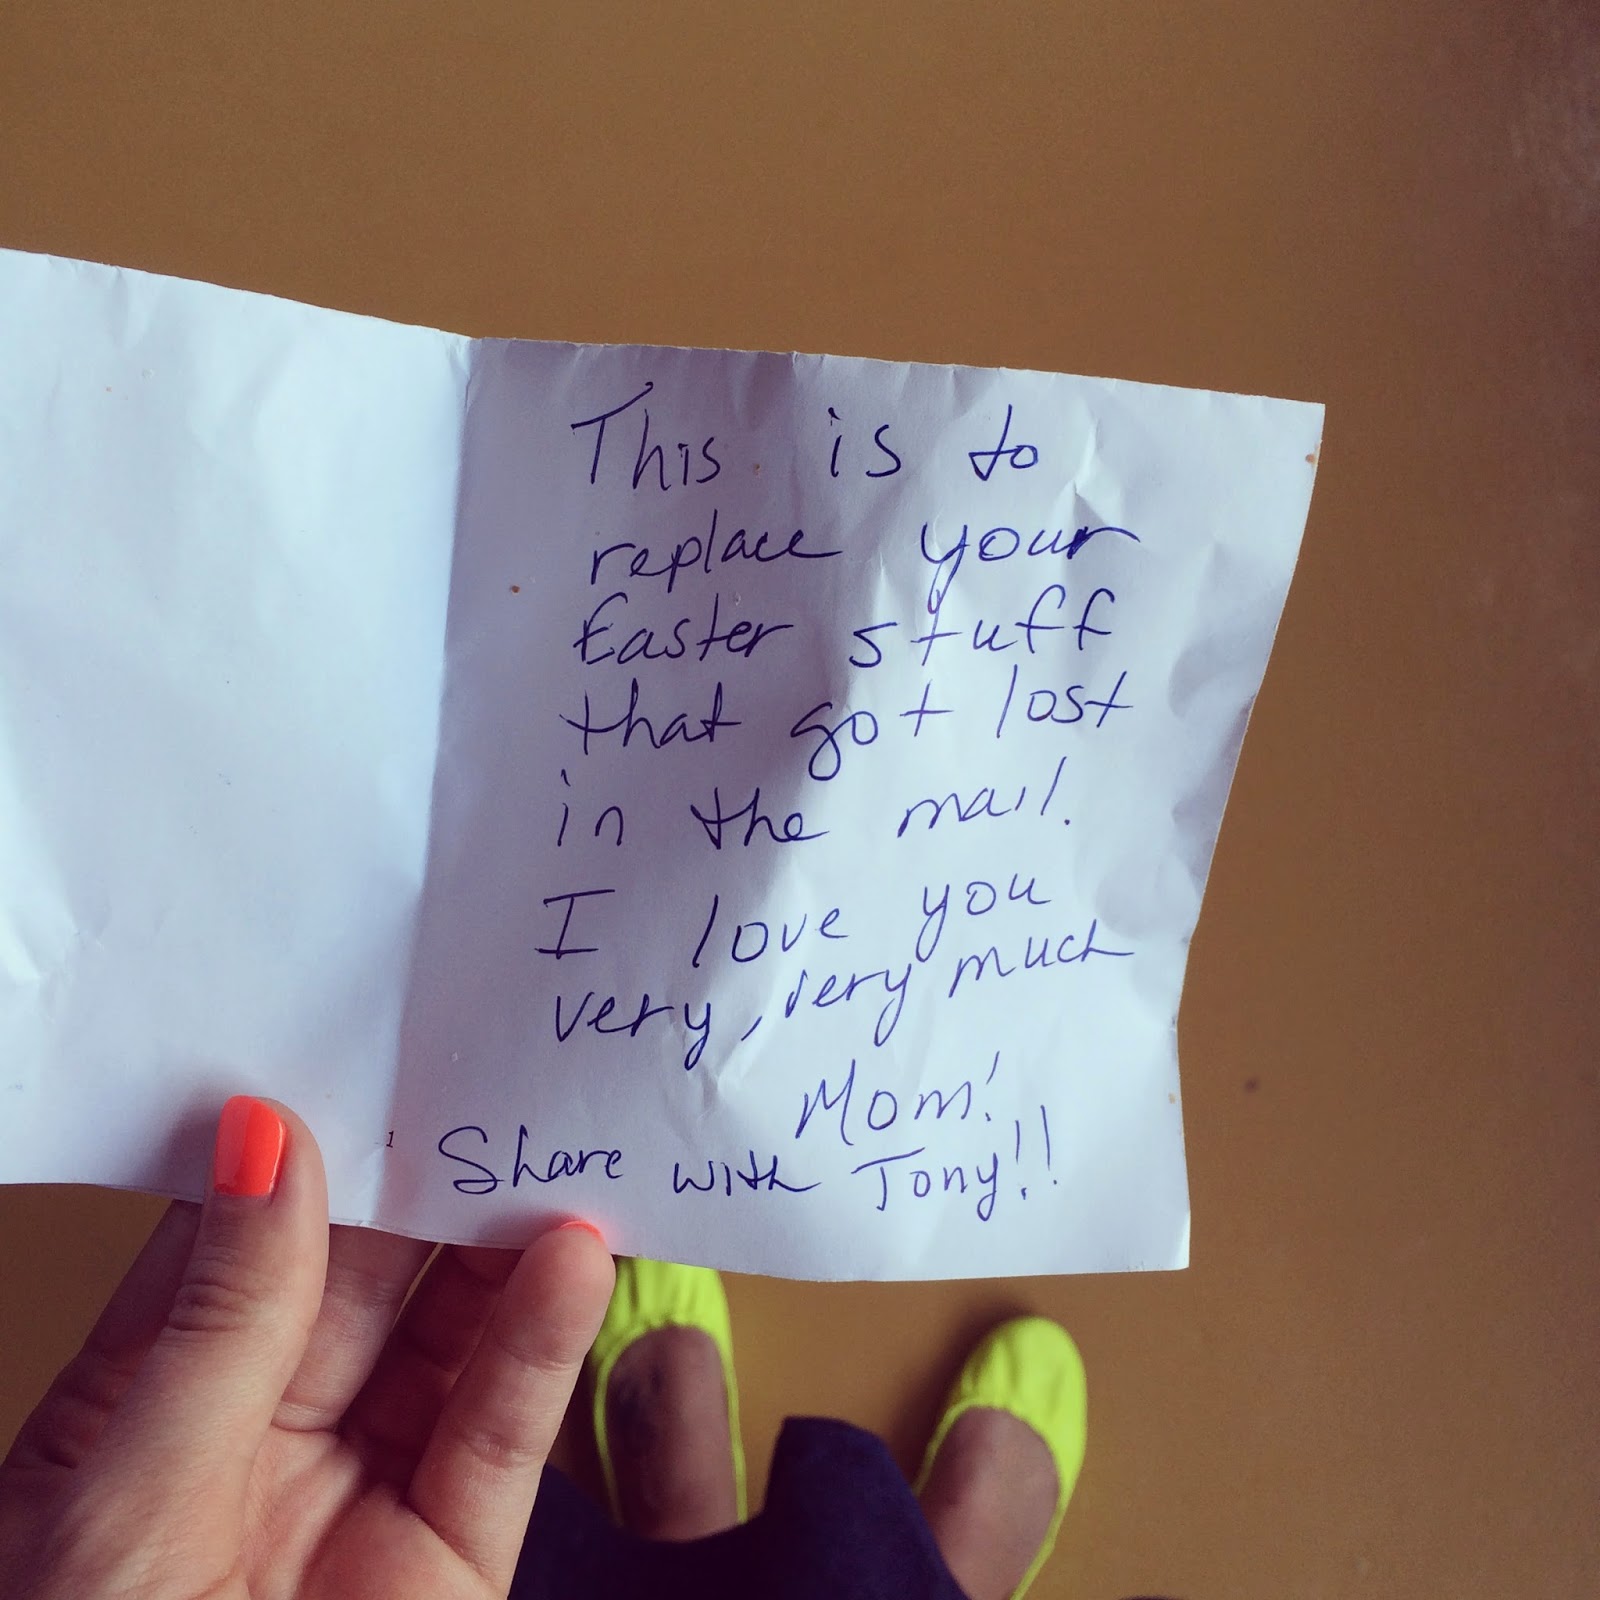 This is to
replace your
Easter stuff
that got lost
in the mail.
I love you
very, very much
Mom!
Share with Tony!!
1